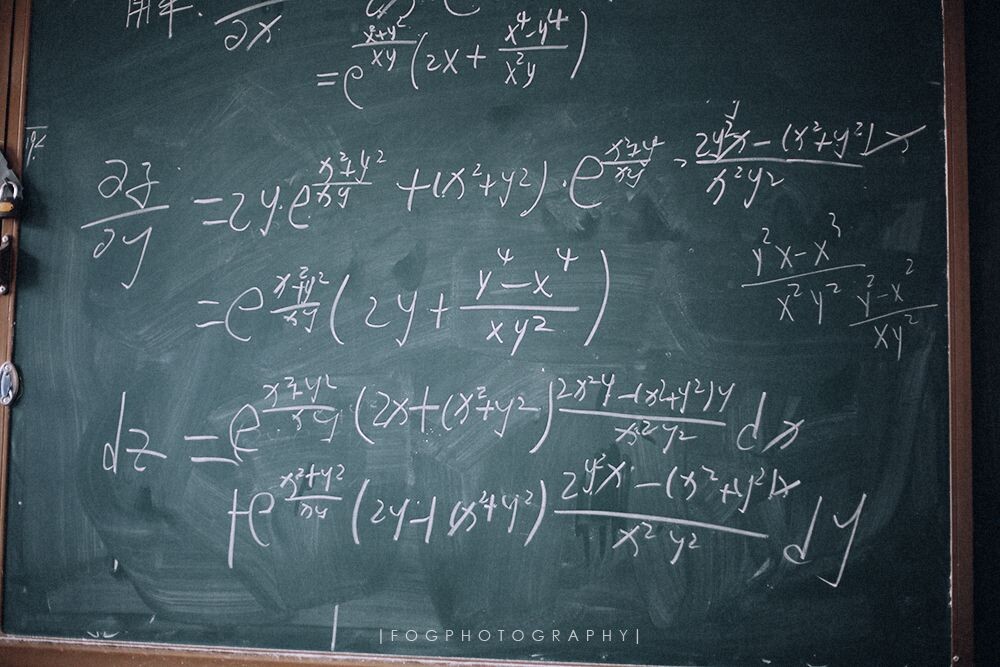 解: ∂x
= e^((x²+y²)/xy) (2x + (x⁴-y⁴)/(x²y))
∂z/∂y = 2y·e^((x²+y²)/xy) + (x²+y²)·e^((x²+y²)/xy) · (2y²x - (x²+y²)x)/(x²y²)
(y²x-x³)/(x²y²)
(y²-x²)/(xy²)
= e^((x²+y²)/xy) (2y + (y⁴-x⁴)/(xy²))
dz = e^((x²+y²)/xy) (2x+(x²+y²) (2x²y-(x²+y²)y)/(x²y²) dx
+e^((x²+y²)/xy) (2y+(x²+y²) (2y²x-(x²+y²)x)/(x²y²) dy
|FOGPHOTOGRAPHY|